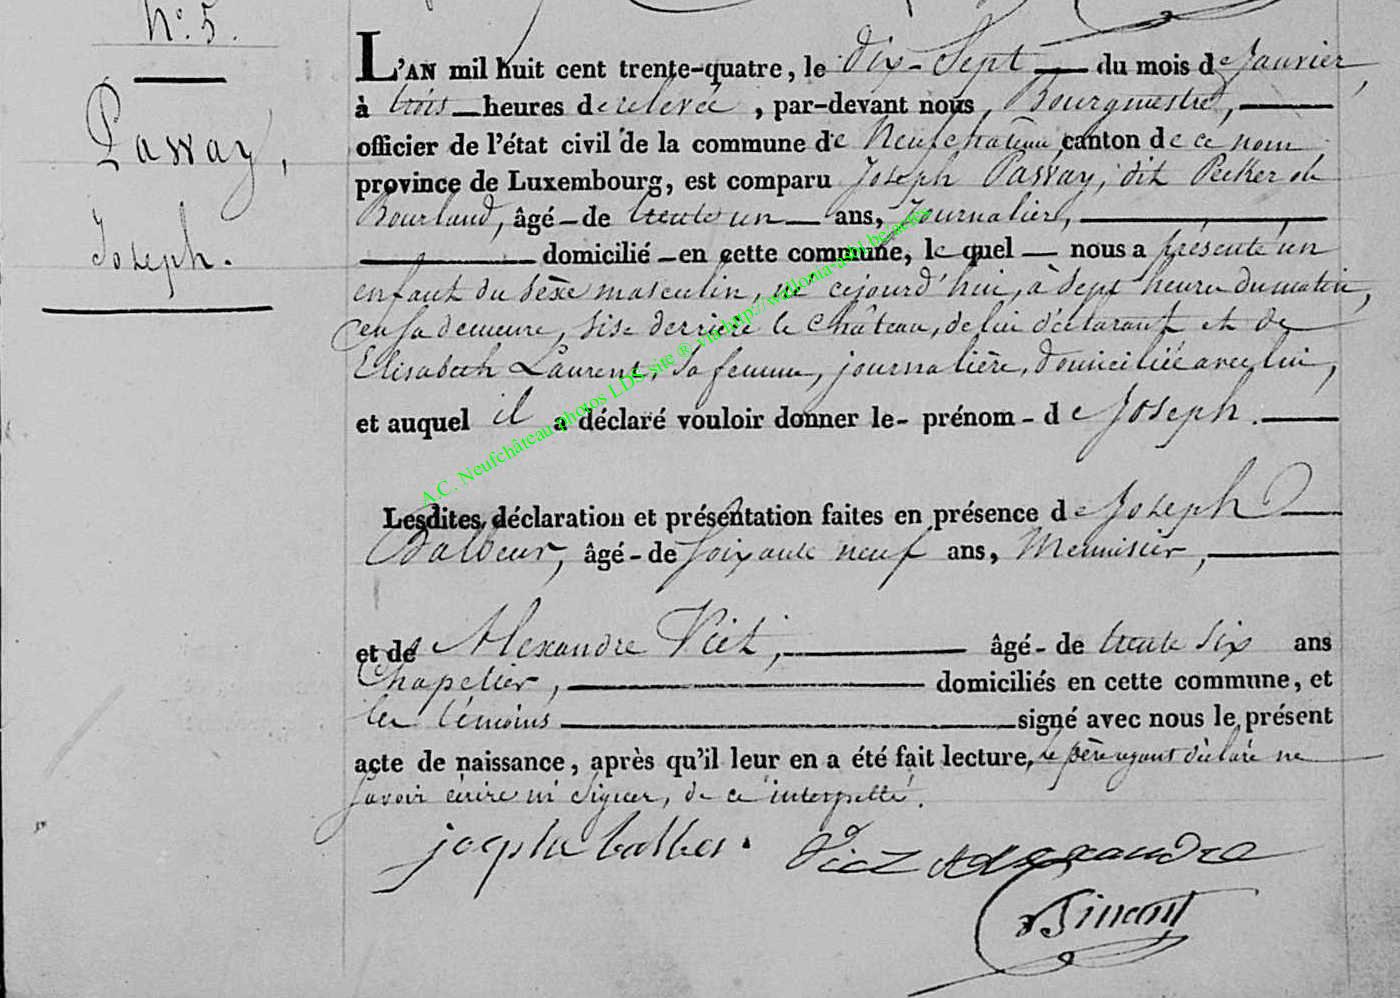 N.o 5.
Passay,
Joseph.
L'AN mil huit cent trente-quatre, le dix-Sept du mois de Janvier,
à trois heures de relevée, par-devant nous, Bourgmestre,
officier de l'état civil de la commune de Neufchâteau, canton de ce nom
province de Luxembourg, est comparu Joseph Passay, dit Pecker de
Bourland, âgé-de trente un ans, Journalier,
domicilié-en cette commune, lequel nous a présenté un
enfant du sèxe masculin, né cejourd'hui, à Sept heures du matin,
en sa demeure, sise derrière le château, de lui déclarant et de
Elisabeth Laurent, sa femme, journalière, domiciliée avec lui,
et auquel il a déclaré vouloir donner le- prénom- de Joseph.
Lesdites déclaration et présentation faites en présence de Joseph
Balbeur, âgé-de Soixante neuf ans, Menuisier,
et de Alexandre Viet, âgé-de trente Six ans
Chapelier, domiciliés en cette commune, et
les témoins signé avec nous le présent
acte de naissance, après qu'il leur en a été fait lecture, le père ayant déclaré ne
Savoir écrire ni Signer, de ce interpellé.
Alexandre
A.C. Neufchâteau photos LDS site ® via http://wallonia-asbl.be/actes